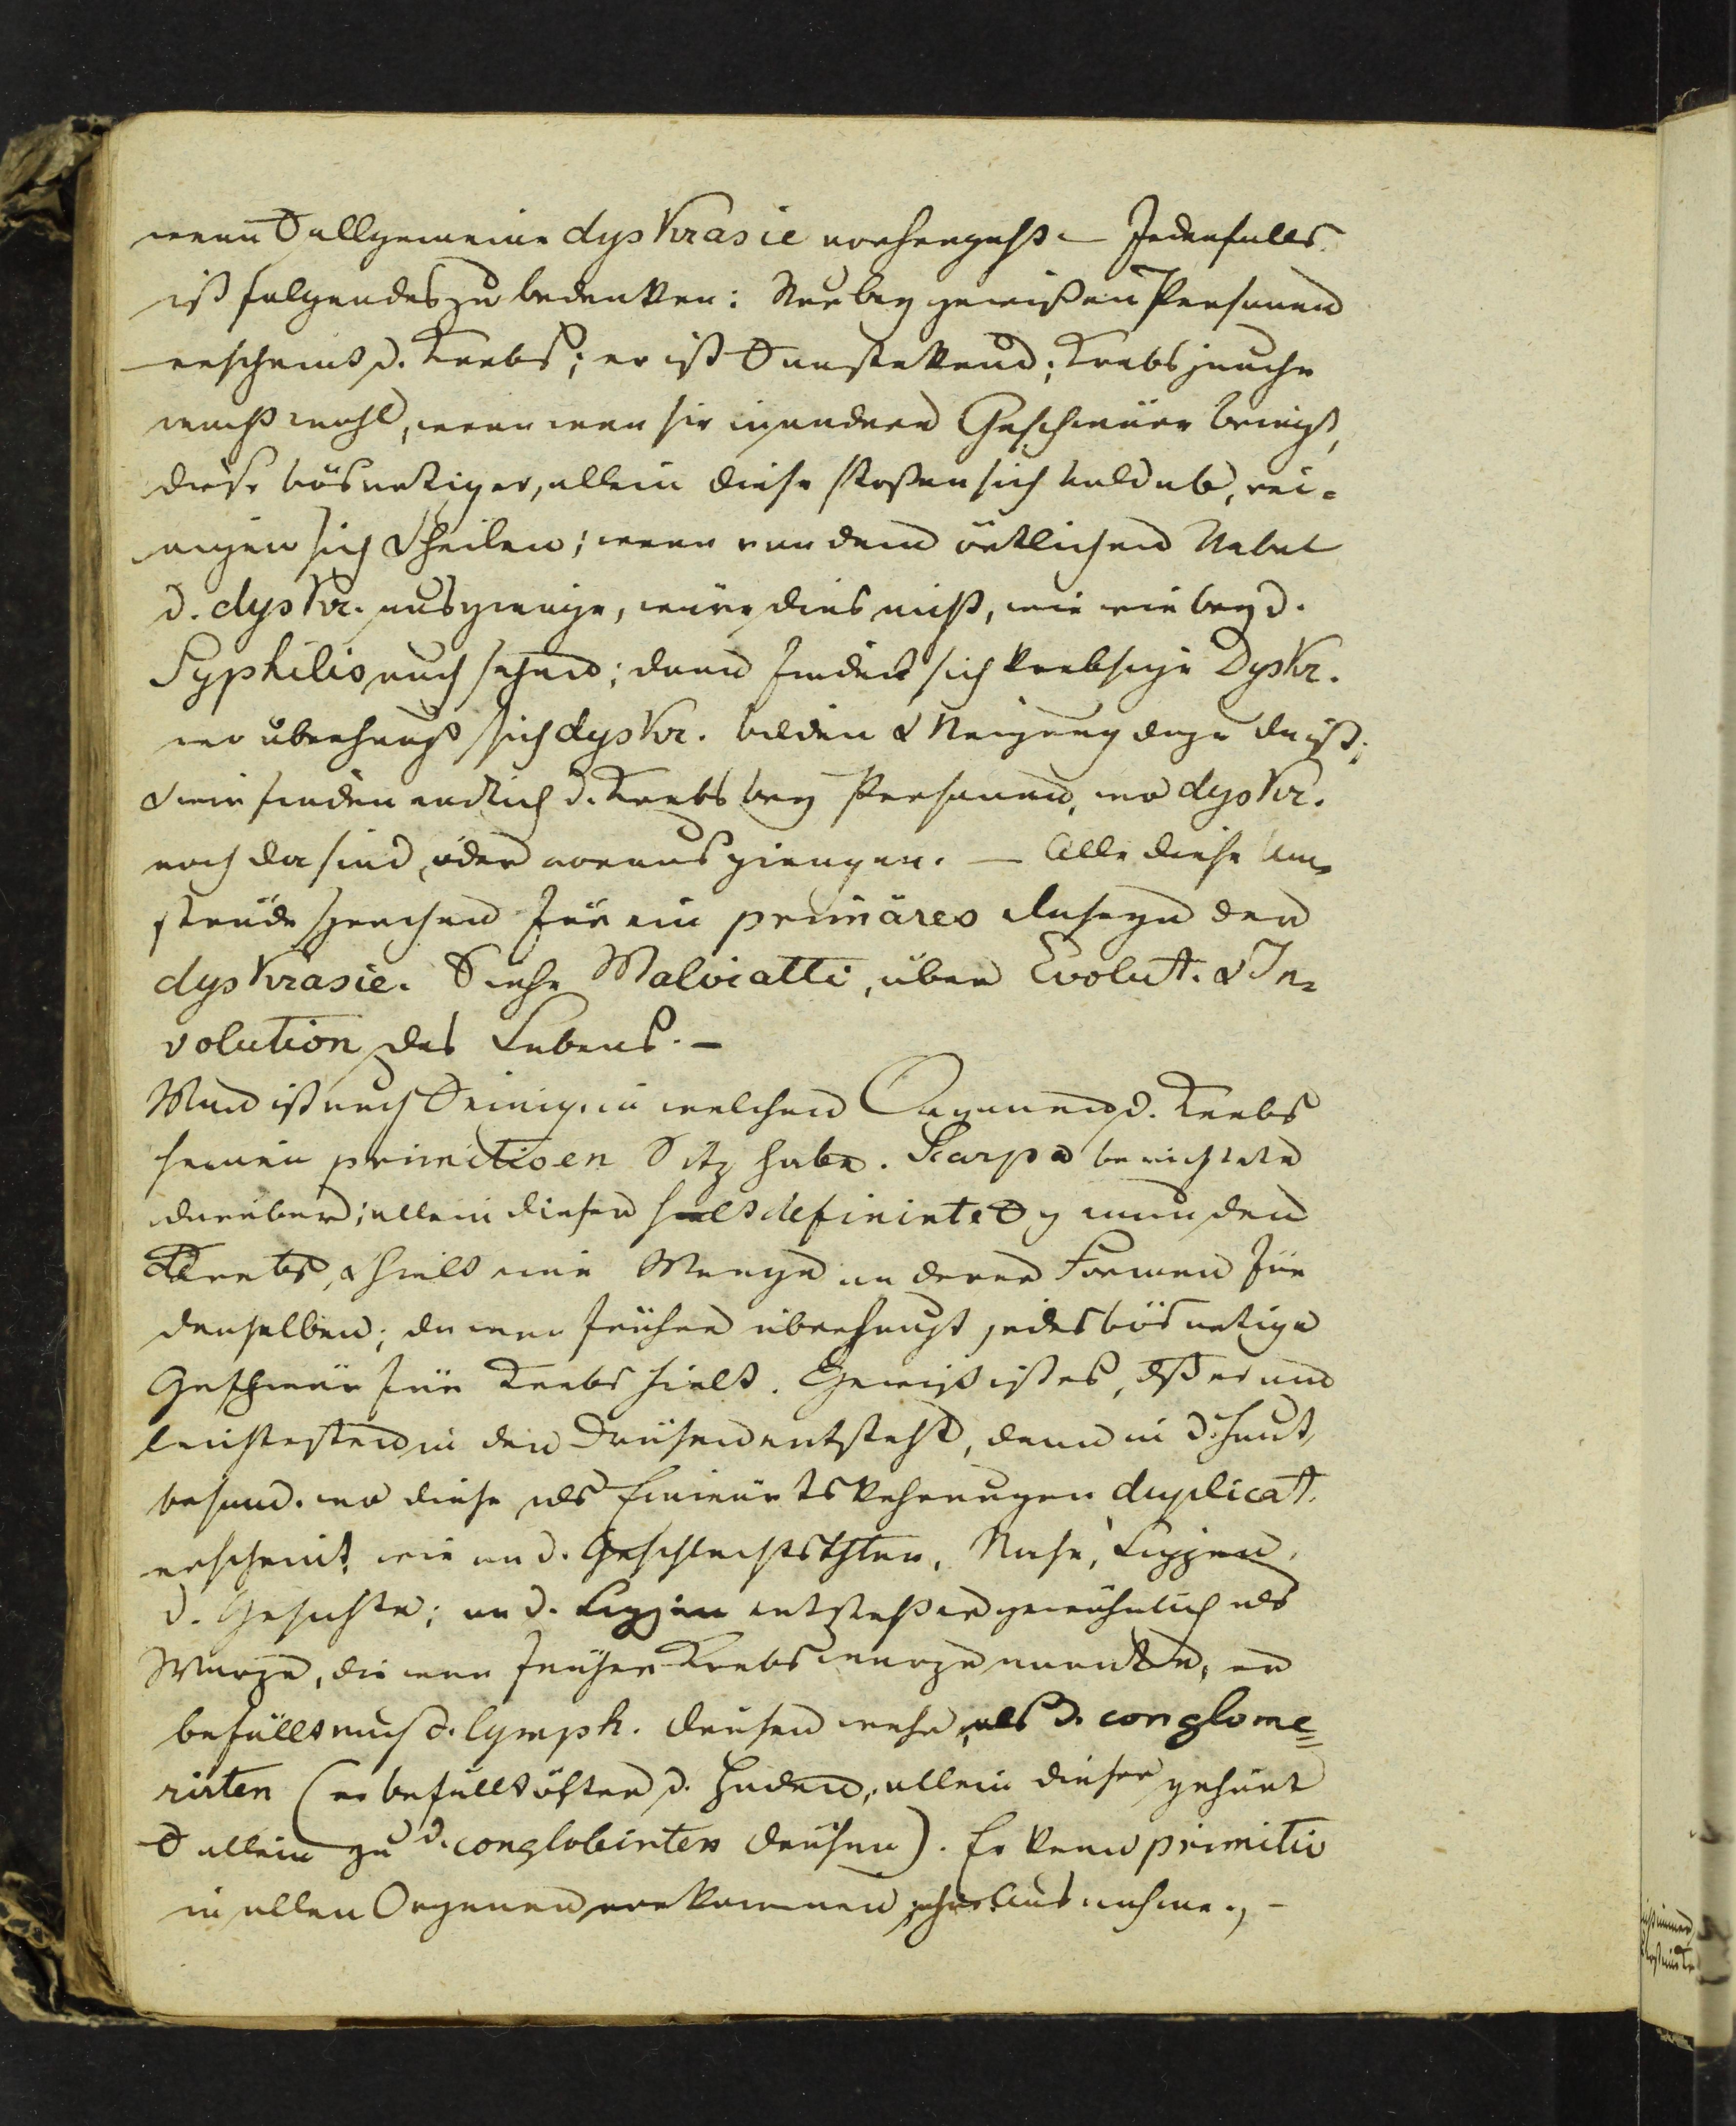 wenn allgemeine dyskrasie vorhergeht — Jedenfalls
ist folgendes zu bedenken: Nur bey gewißen Personen
erscheint d. Krebs; er ist ansteckend; Krebsjauche
macht wohl, wenn man sie in andere Geschwüre bringt,
diese bösartiger, allein diese stoßen sich bald ab, rei-
nigen sich & heilen; wenn von dem örtlichen Uebel
d. dyskr. ausgienge, wäre dies nicht, wie wir bey d.
Syphilis auch sehen; dann findet sich krebsige Dyskr.
wo überhaupt sich dyskr. bilden & Neigung dazu da ist;
& wir finden endlich d. Krebs bey Personen, wo dyskr.
noch da sind, oder vorausgiengen. — Alle diese Um-
stände sprechen für ein primäres Daseyn der
dyskrasie. Siehe Malviatti, über Evolut. & In-
volution des Lebens. —
Man ist auch einig, in welchen Organen d. Krebs
seinen primitiven Sitz habe. Scarpa berichtete
darüber; allein dieser definirte g man den
Krebs, & hielt eine Menge anderer Formen für
denselben; da man früher überhaupt jedes bösartige
Geschwür für Krebs hielt. Gewiß ist es, dß er am
leichtesten in den Drüsen entsteht, dann in d. Haut,
besond. wo diese als Einwärtskehrungen duplicat.
erscheint, wie an d. Geschlechtsthlen, Nase, Lippen,
d. Gesichte; an d. Lippen entsteht er gewöhnlich als
Warze, die man früher Krebswarze nannte, er
befällt auch d. lymph. Drüsen mehr, als d. conglome-
rirten (er befällt öfter d. Hoden, allein dieser gehört
allein zu d. conglobirten Drüsen). Er kann primitiv
in allen Organen vorkommen, ohne Ausnahme. —